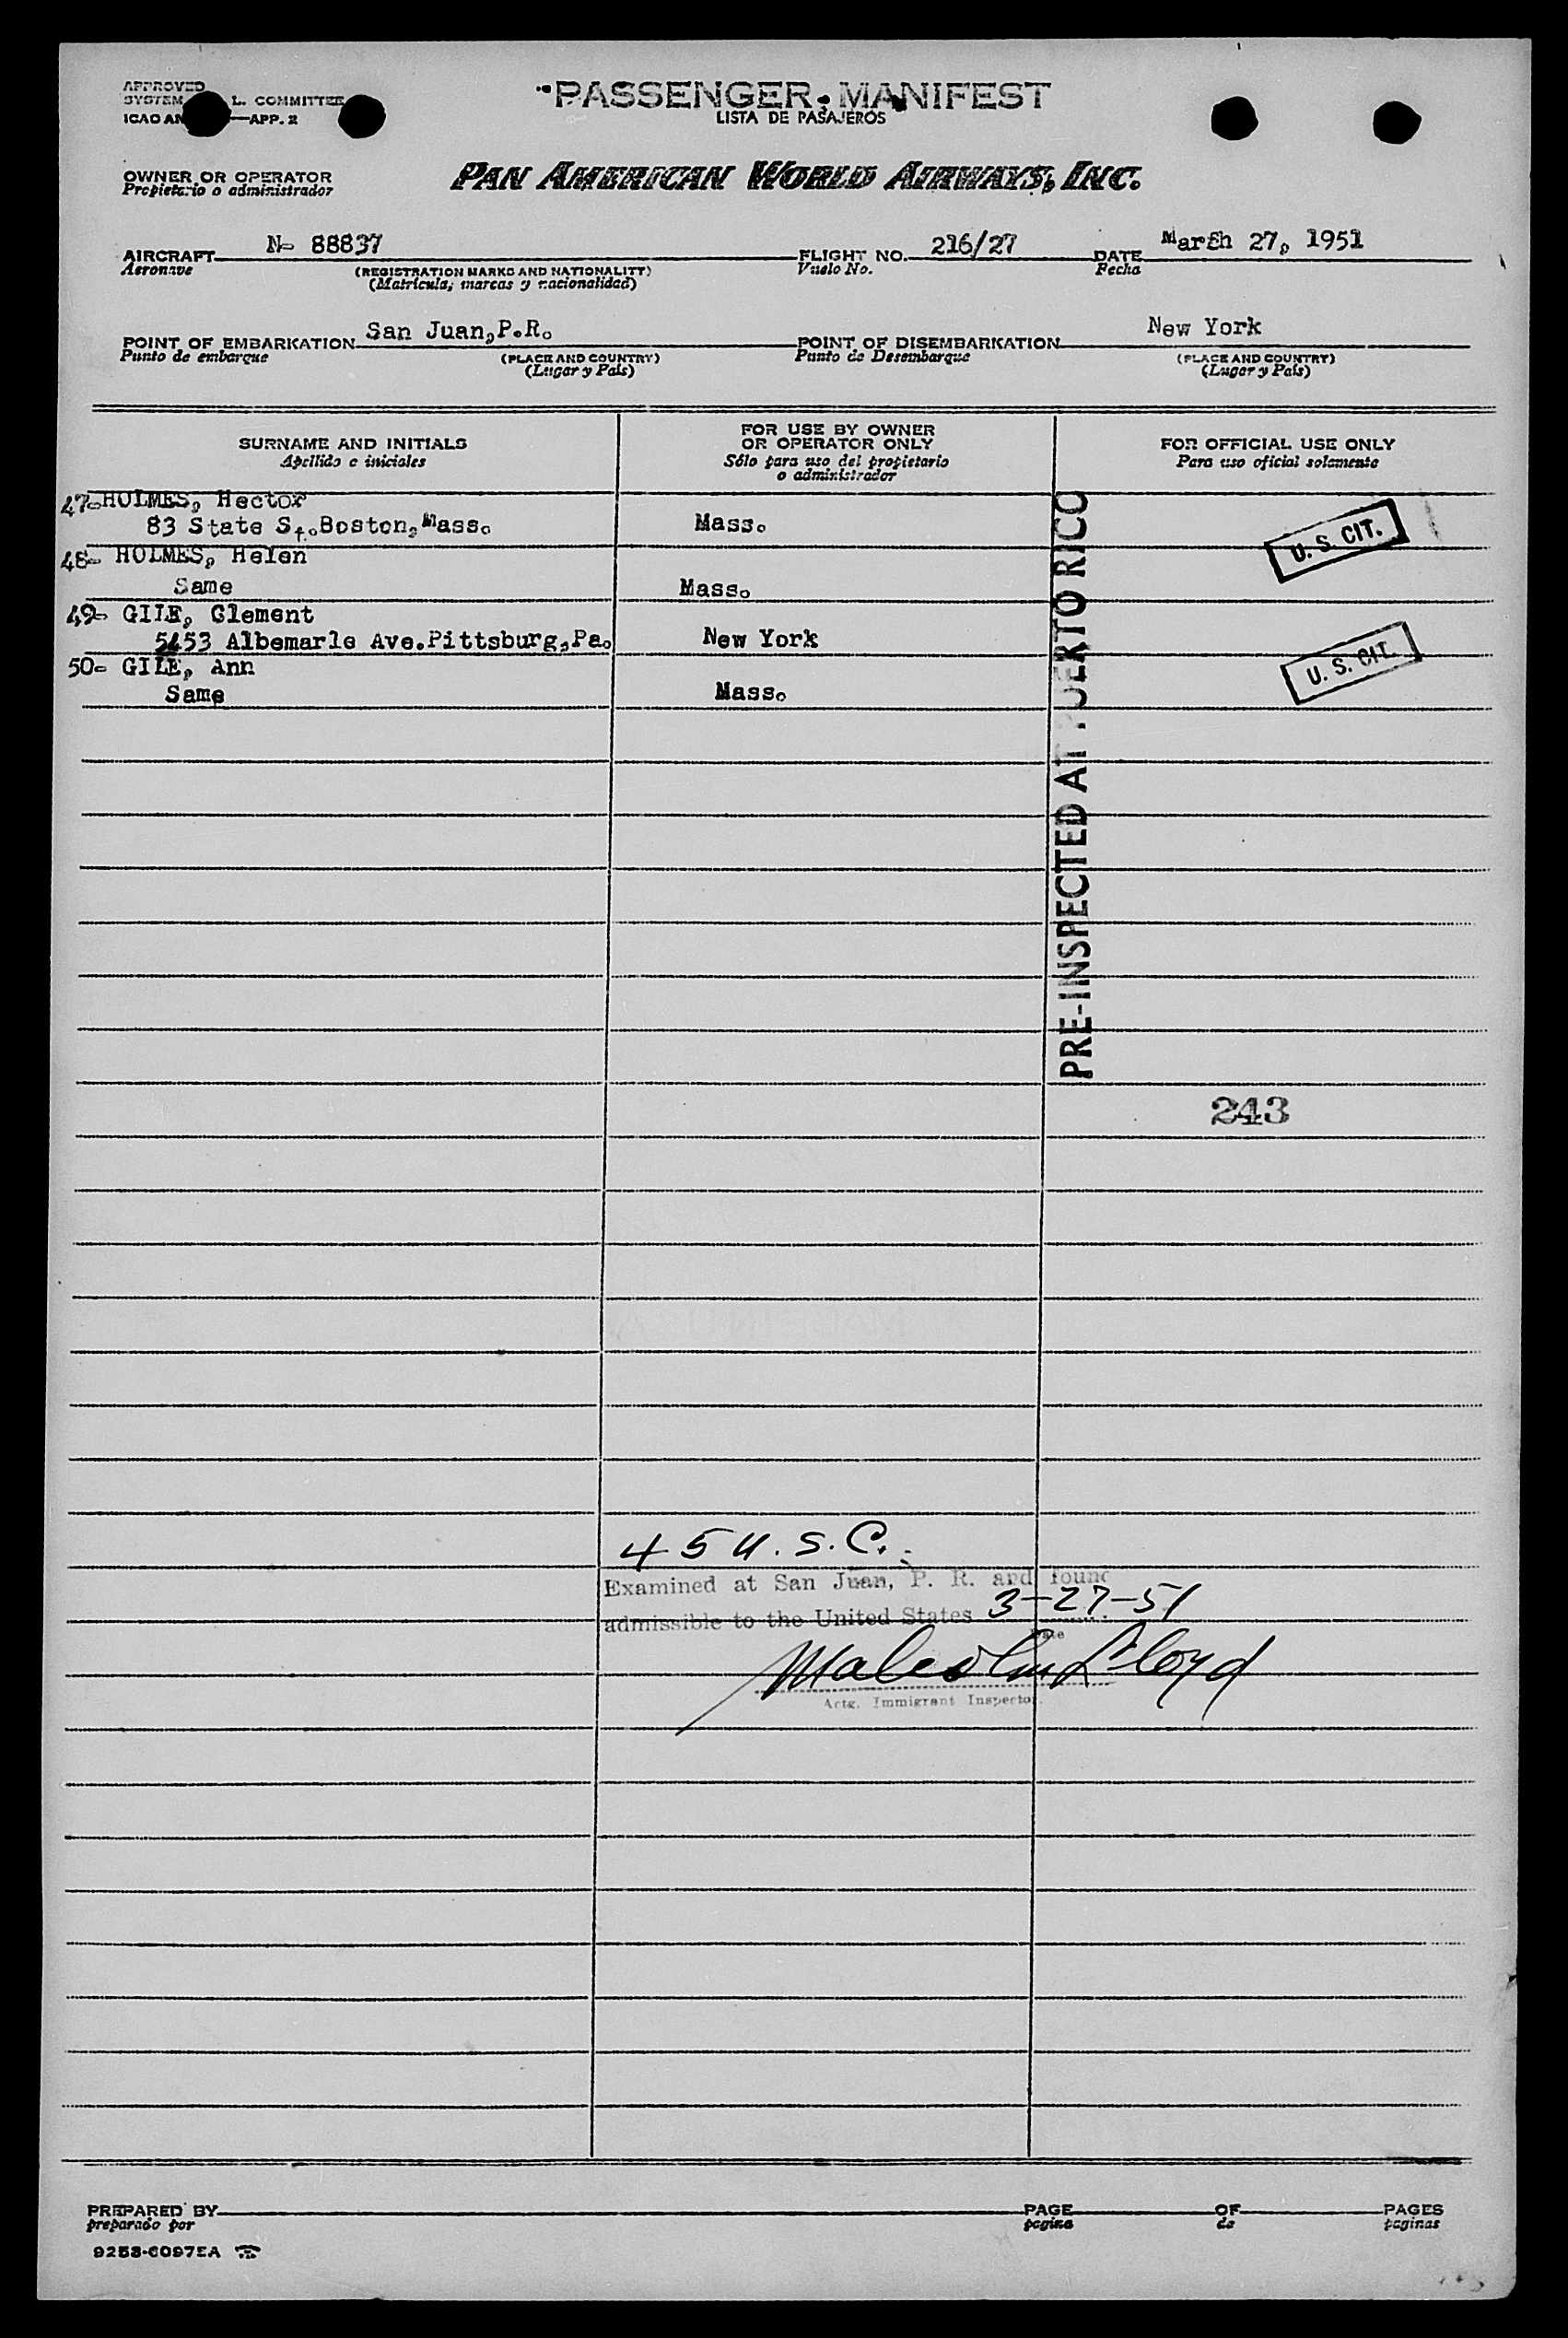 APPROVED
SYSTEM L. COMMITTEE
ICAO AN —APP. 2
PASSENGER MANIFEST
LISTA DE PASAJEROS
OWNER OR OPERATOR
Propietario o administrador
PAN AMERICAN WORLD AIRWAYS, INC.
AIRCRAFT N- 88837 FLIGHT NO. 216/27 DATE March 27, 1951
Aeronave (REGISTRATION MARKS AND NATIONALITY) Vuelo No. Fecha
(Matrícula, marcas y nacionalidad)
POINT OF EMBARKATION San Juan,P.R. POINT OF DISEMBARKATION New York
Punto de embarque (PLACE AND COUNTRY) Punto de Desembarque (PLACE AND COUNTRY)
(Lugar y País) (Lugar y País)
SURNAME AND INITIALS FOR USE BY OWNER OR OPERATOR ONLY FOR OFFICIAL USE ONLY
Apellido e iniciales Sólo para uso del propietario o administrador Para uso oficial solamente
47-HOLMES, Hector
83 State St.Boston,Mass. Mass. U. S. CIT.
48- HOLMES, Helen
Same Mass.
49- GILE, Clement
5453 Albemarle Ave.Pittsburg,Pa. New York U. S. CIT.
50- GILE, Ann
Same Mass.
PRE-INSPECTED AT PUERTO RICO
243
45 U.S.C.
Examined at San Juan, P. R. and found
admissible to the United States 3-27-51
Date
Malcolm Lloyd
Actg. Immigrant Inspector.
PREPARED BY PAGE OF PAGES
preparado por pagina de paginas
9253-6097EA